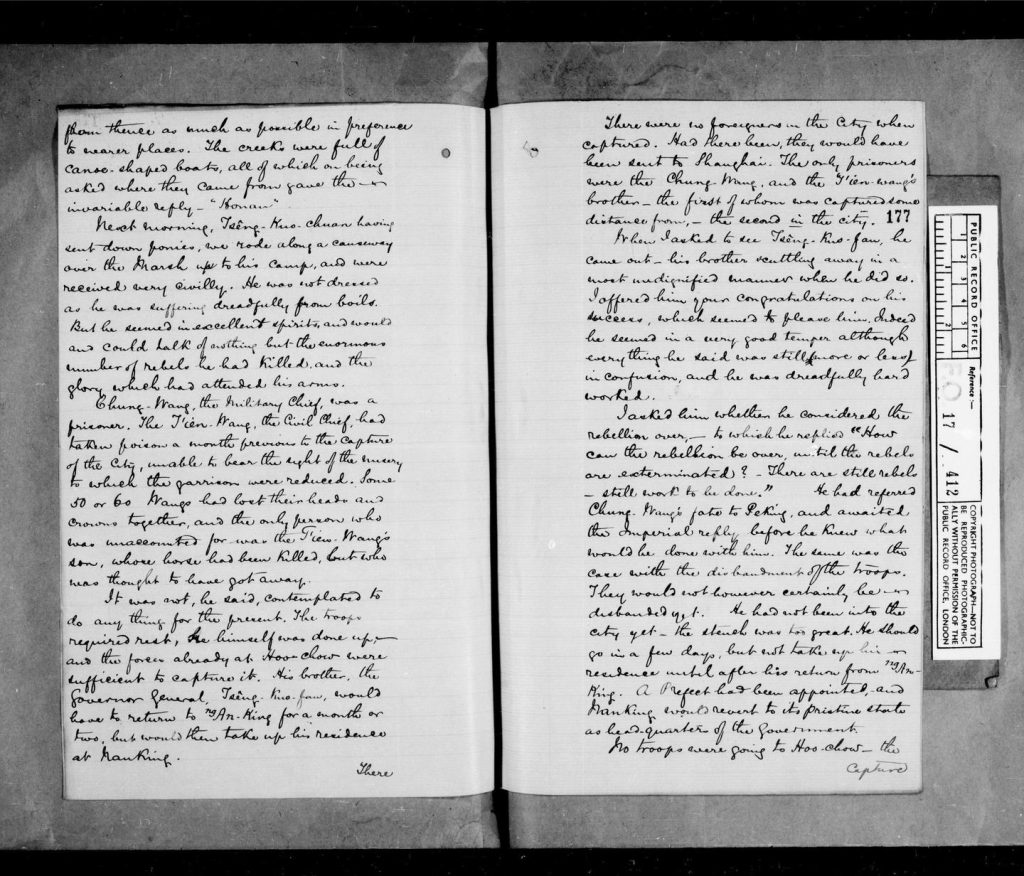 from thence as much as possible in preference
to nearer places. The creeks were full of
Canoe-shaped boats, all of which on being
asked where they came from gave the
invariable reply - "Honan"
Next morning, Tsêng-Kuo-chuan having
sent down ponies, we rode along a causeway
over the Marsh up to his camp, and were
received very civilly. He was not dressed
as he was suffering dreadfully from boils.
But he seemed in excellent spirits, and would
and could talk of nothing but the enormous
number of rebels he had killed, and the
glory which had attended his arms.
Chung-Wang, the Military Chief, was a
prisoner. The T'ien-Wang, the Civil Chief, had
taken poison a month previous to the capture
of the City, unable to bear the sight of the misery
to which the garrison were reduced. Some
50 or 60 Wangs had lost their heads and
crowns together, and the only person who
was unaccounted for was the T'ien-Wang's
son, whose horse had been killed, but who
was thought to have got away.
It was not, he said, contemplated to
do any thing for the present. The troops
required rest, he himself was done up,
and the forces already at Hoo-chow were
sufficient to capture it. His brother, the
Governor General, Tsêng-Kuo-fan, would
have to return to ngAn-King for a month or
two, but would then take up his residence
at Nanking.
There
There were no foreigners in the City when
captured. Had there been, they would have
been sent to Shanghai. The only prisoners
were the Chung-Wang, and the T'ien-wang's
brother - the first of whom was captured some
distance from, - the second in the city. 177
When I asked to see Tsêng-Kuo-fan, he
came out - his brother scuttling away in a
most undignified manner when he did so.
I offered him your congratulations on his
success, which seemed to please him. Indeed
he seemed in a very good temper although
everything he said was still more or less
in confusion, and he was dreadfully hard
worked.
I asked him whether he considered the
rebellion over, - to which he replied "How
can the rebellion be over, until the rebels
are exterminated? - There are still rebels
- still work to be done." He had referred
Chung-Wang's fate to Peking, and awaited
the Imperial reply before he knew what
would be done with him. The same was the
case with the disbandment of the troops.
They would not however certainly be
disbanded yet. He had not been into the
city yet - the stench was too great. He should
go in a few days, but not take up his
residence until after his return from ngAn-
King. A Prefect had been appointed, and
Nanking would revert to its pristine state
as head-quarters of the Government.
No troops were going to Hoo-chow - the
Capture
PUBLIC RECORD OFFICE
1 2 3 4 5 6
1 2
Reference:-
FO 17 / 412
COPYRIGHT PHOTOGRAPH-NOT TO
BE REPRODUCED PHOTOGRAPHIC-
ALLY WITHOUT PERMISSION OF THE
PUBLIC RECORD OFFICE, LONDON